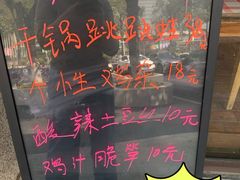 干锅跳跳蛙
小生鸡杂 18元
酸辣土豆丝 10元
鸡汁脆笋 10元